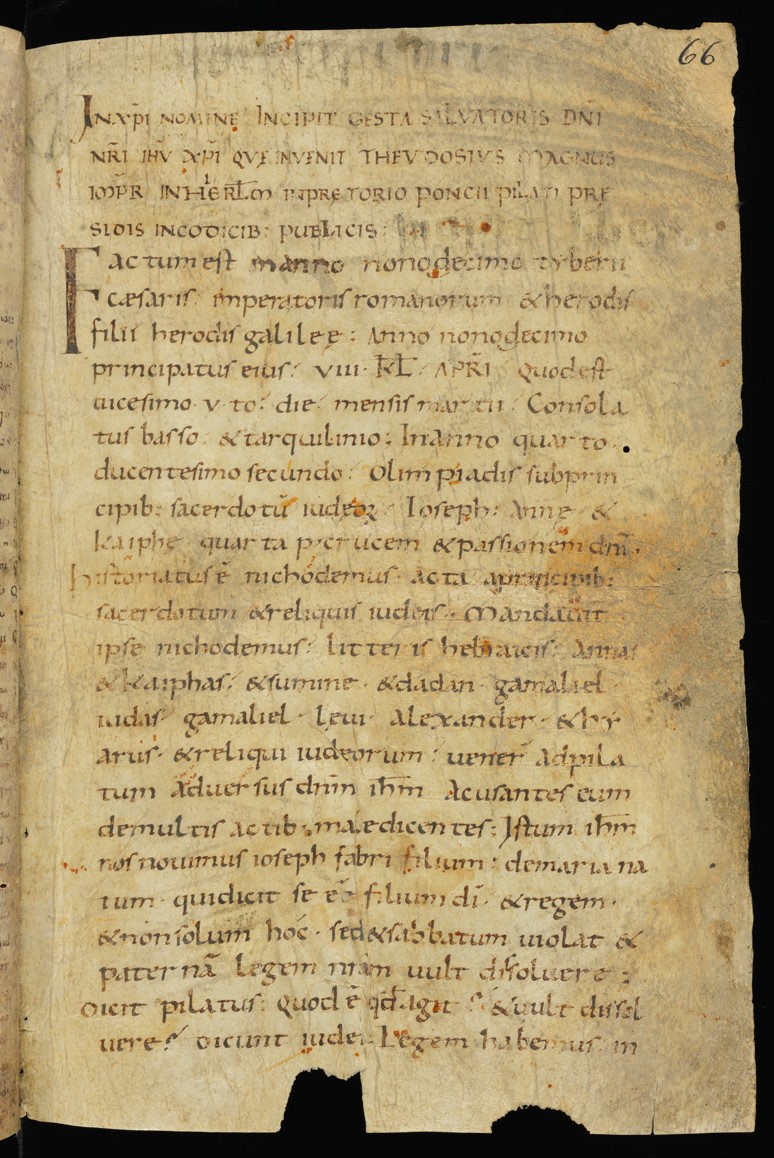 66
IN XP̄I NOMINE INCIPIT GESTA SALVATORIS DN̄I
NR̄I IHV̄ XP̄I QVE INVENIT THEVDOSIVS MAGNUS
IMPR IN HIERL̄M IN PRETORIO PONCII PILATI PRE
SIDIS IN CODICIB: PUBLICIS:
Factum est in anno nonodecimo tyberii
cæsaris imperatoris romanorum & herodis
filii herodis galileę: Anno nonodecimo
principatus eius: VIII. KL̄. APR̄I. Quod est
uicesimo. v. to: die. mensis martii. Consola
tus basso. & tarquilinio: In anno quarto.
ducentesimo secundo: Olimpiadis sub prin
cipib: sacerdotū iudeoꝝ: Ioseph: Anne &
kaiphe quarta p. crucem & passionem dnī.
historiatus ē nichodemus. acta a principib:
sacerdotum & reliquis iudeis. Mandauit
ipse nichodemus: litteris hebraicis: Annas
& kaiphas: & summe. & dadan. gamaliel.
iudas gamaliel. leui. Alexander. & hy
arus. & reliqui iudeorum: uener̄ ad pila
tum aduersus dnm̄ ihm̄ Acusantes eum
de multis actib: maledicentes: Istum ihm̄
nos nouimus ioseph fabri filium: de maria na
tum. qui dicit se eē filium dī. & regem.
& non solum hoc. sed & sabbatum uiolat &
paternā legem nr̄am uult dissoluere:
Dicit pilatus: Quod ē qd̄ agit? & uult dissol
uere? Dicunt iudei. Legem habemus in